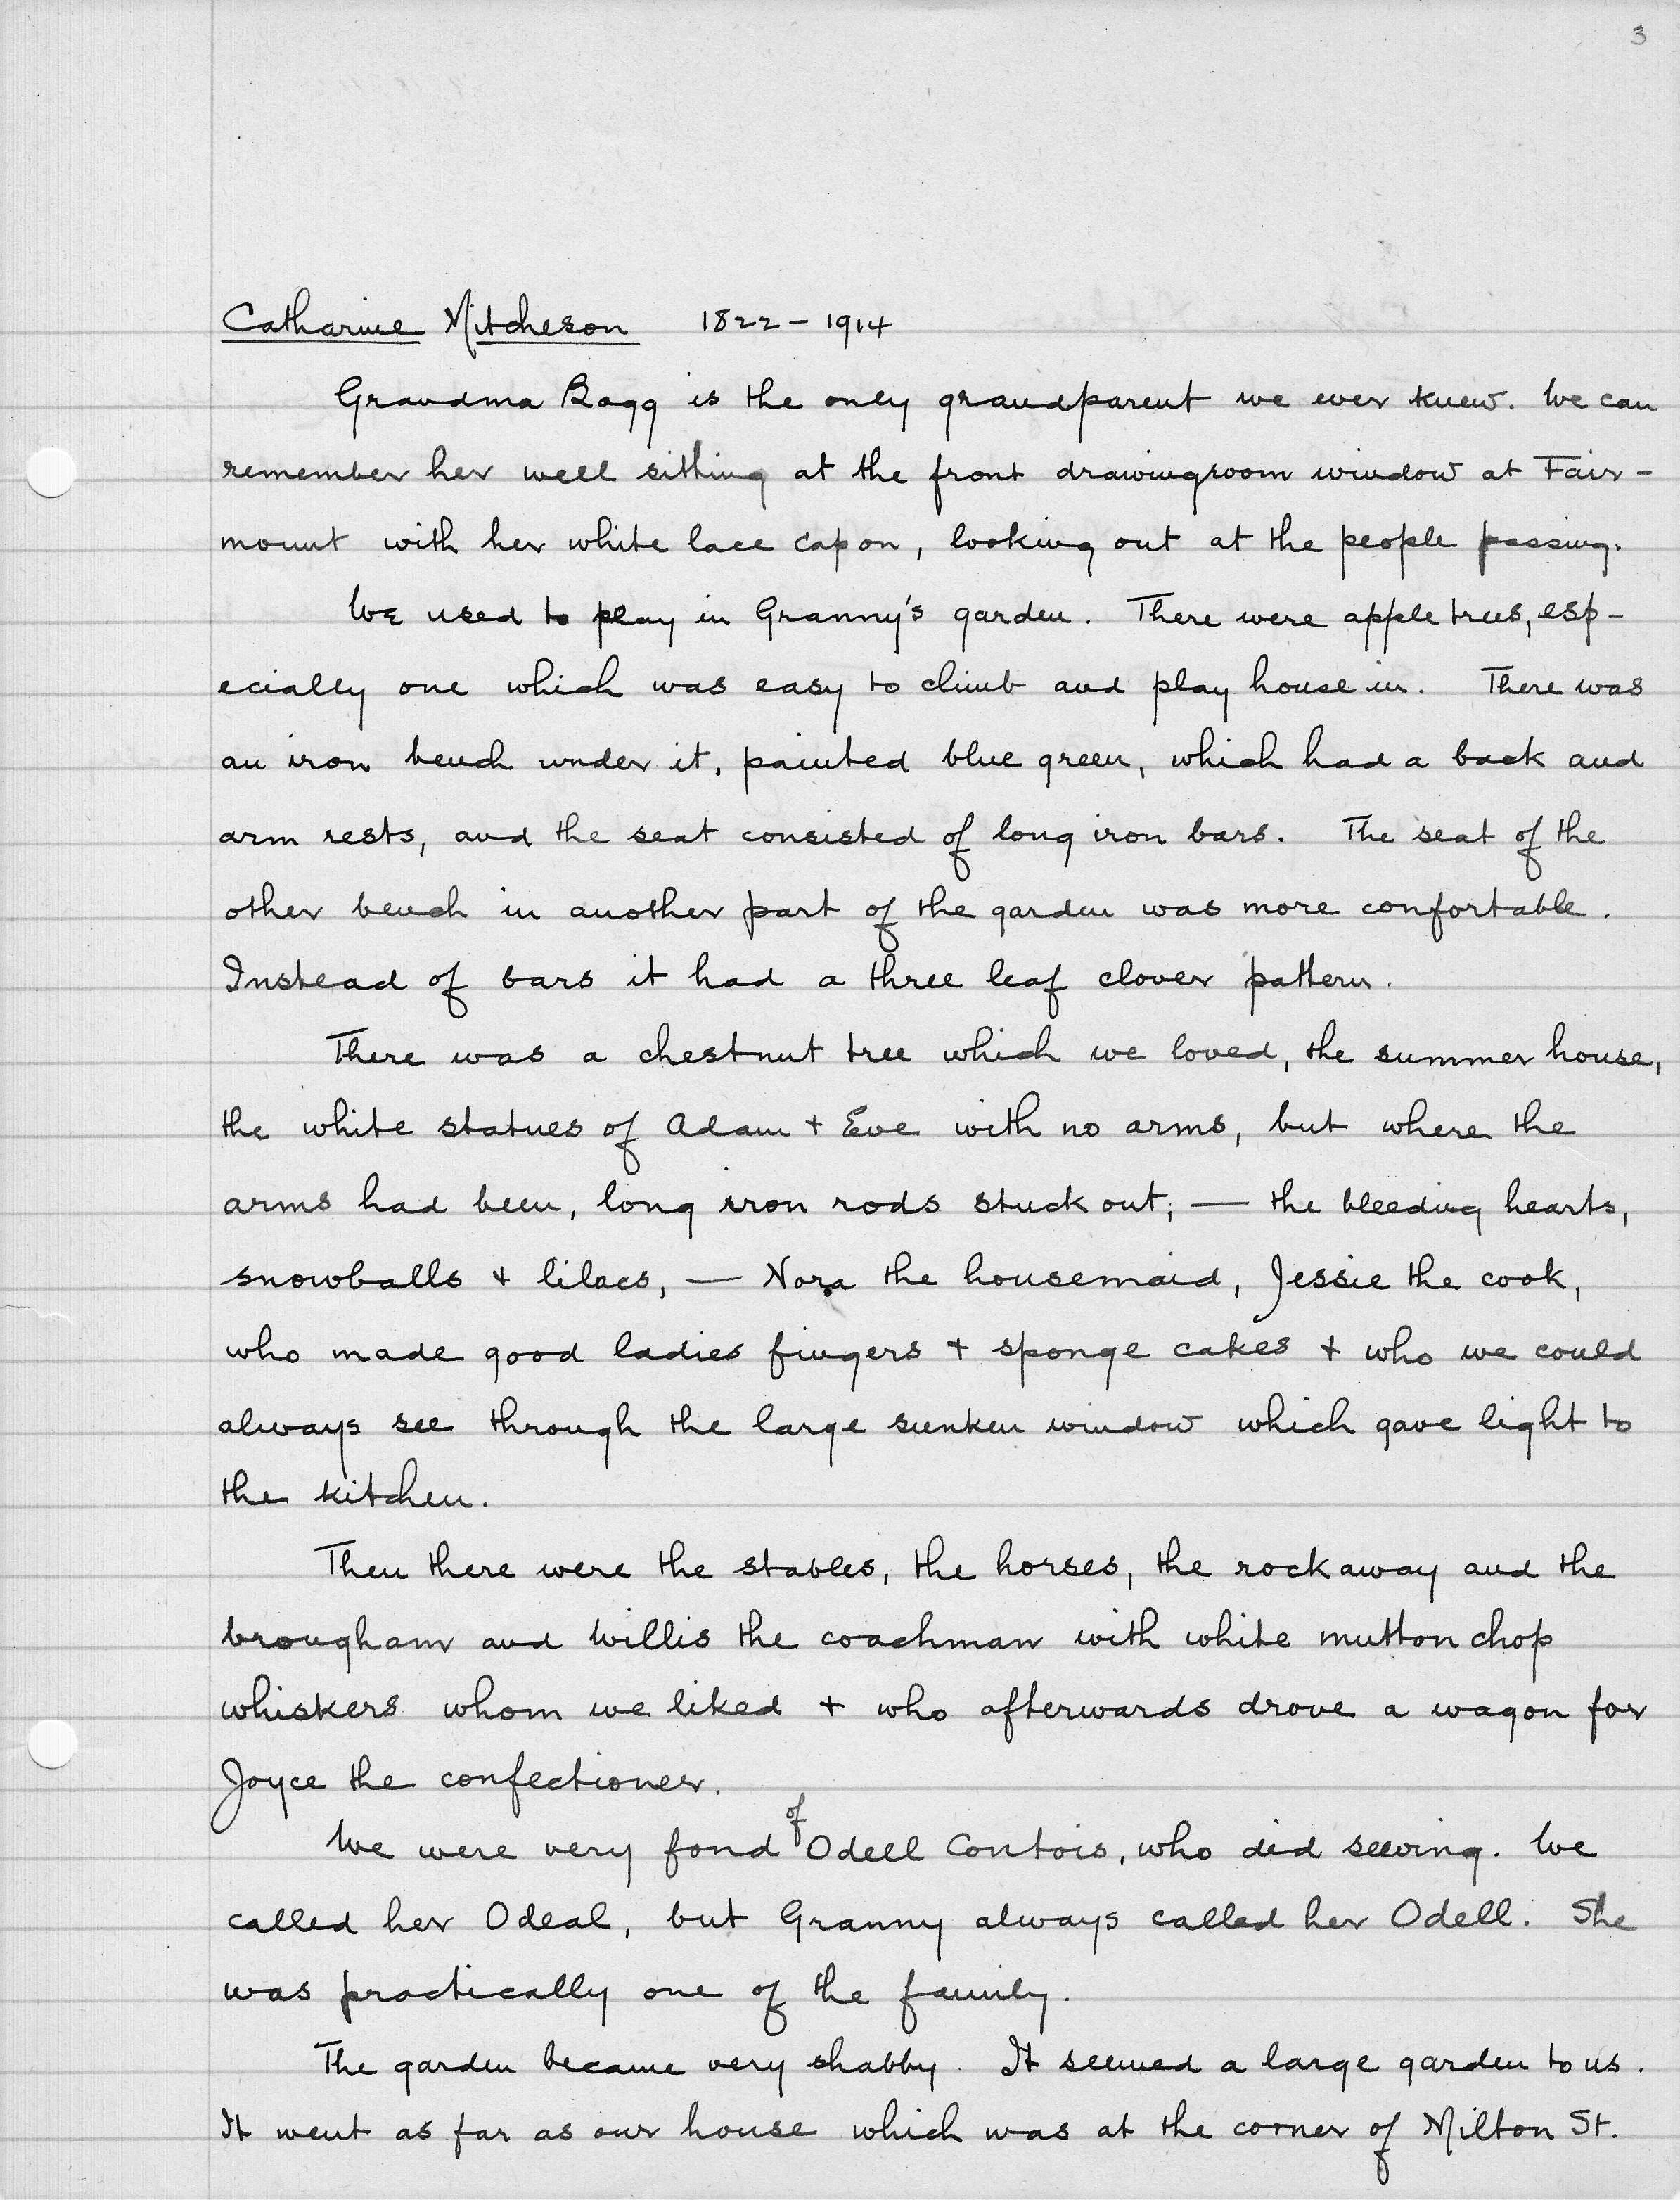 3
Catharine Mitcheson 1822 - 1914
Grandma Bagg is the only grandparent we ever knew. We can
remember her well sitting at the front drawingroom window at Fair-
mount with her white lace cap on, looking out at the people passing.
We used to play in Granny's garden. There were apple trees, esp-
ecially one which was easy to climb and play house in. There was
an iron bench under it, painted blue green, which had a back and
arm rests, and the seat consisted of long iron bars. The seat of the
other bench in another part of the garden was more confortable.
Instead of bars it had a three leaf clover pattern.
There was a chestnut tree which we loved, the summer house,
the white statues of Adam + Eve with no arms, but where the
arms had been, long iron rods stuck out; — the bleeding hearts,
snowballs + lilacs, — Nora the housemaid, Jessie the cook,
who made good ladies fingers + sponge cakes + who we could
always see through the large sunken window which gave light to
the kitchen.
Then there were the stables, the horses, the rockaway and the
brougham and Willis the coachman with white mutton chop
whiskers whom we liked + who afterwards drove a wagon for
Joyce the confectioner.
We were very fond of Odell Contois, who did sewing. We
called her Odeal, but Granny always called her Odell. She
was practically one of the family.
The garden became very shabby. It seemed a large garden to us.
It went as far as our house which was at the corner of Milton St.